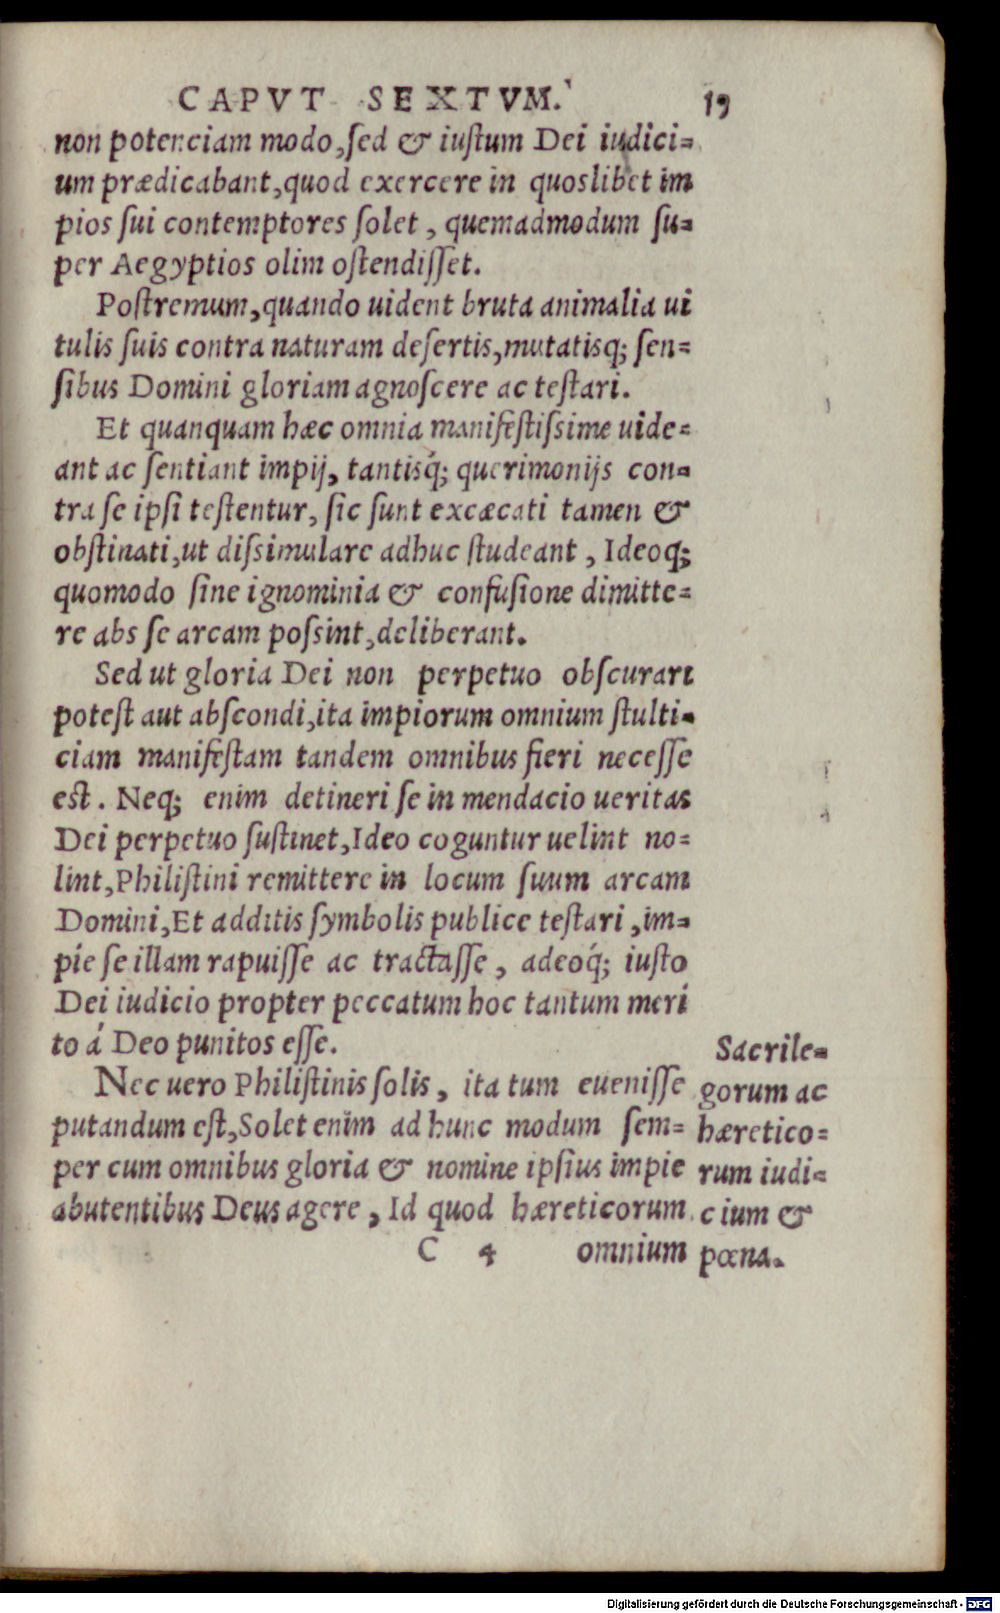 CAPVT SEXTVM. 19
non potenciam modo, sed & iustum Dei iudici=
um prædicabant, quod exercere in quoslibet im
pios sui contemptores solet, quemadmodum su=
per Aegyptios olim ostendisset.
Postremum, quando uident bruta animalia ui
tulis suis contra naturam desertis, mutatisq; sen=
sibus Domini gloriam agnoscere ac testari.
Et quanquam hæc omnia manifestissime uide=
ant ac sentiant impij, tantisq́; querimonijs con=
tra se ipsi testentur, sic sunt excæcati tamen &
obstinati, ut dissimulare adhuc studeant, Ideoq;
quomodo sine ignominia & confusione dimitte=
re abs se arcam possint, deliberant.
Sed ut gloria Dei non perpetuo obscurari
potest aut abscondi, ita impiorum omnium stulti=
ciam manifestam tandem omnibus fieri necesse
est. Neq; enim detineri se in mendacio ueritas
Dei perpetuo sustinet, Ideo coguntur uelint no=
lint, Philistini remittere in locum suum arcam
Domini, Et additis symbolis publice testari, im=
píe se illam rapuisse ac tractasse, adeoq́; iusto
Dei iudicio propter peccatum hoc tantum meri
to á Deo punitos esse.
Nec uero Philistinis solis, ita tum euenisse
putandum est, Solet enim ad hunc modum sem=
per cum omnibus gloria & nomine ipsius impie
abutentibus Deus agere, Id quod hæreticorum
C 4 omnium
Sacrile=
gorum ac
hæretico=
rum iudi=
cium &
pœna.
Digitalisierung gefördert durch die Deutsche Forschungsgemeinschaft - DFG